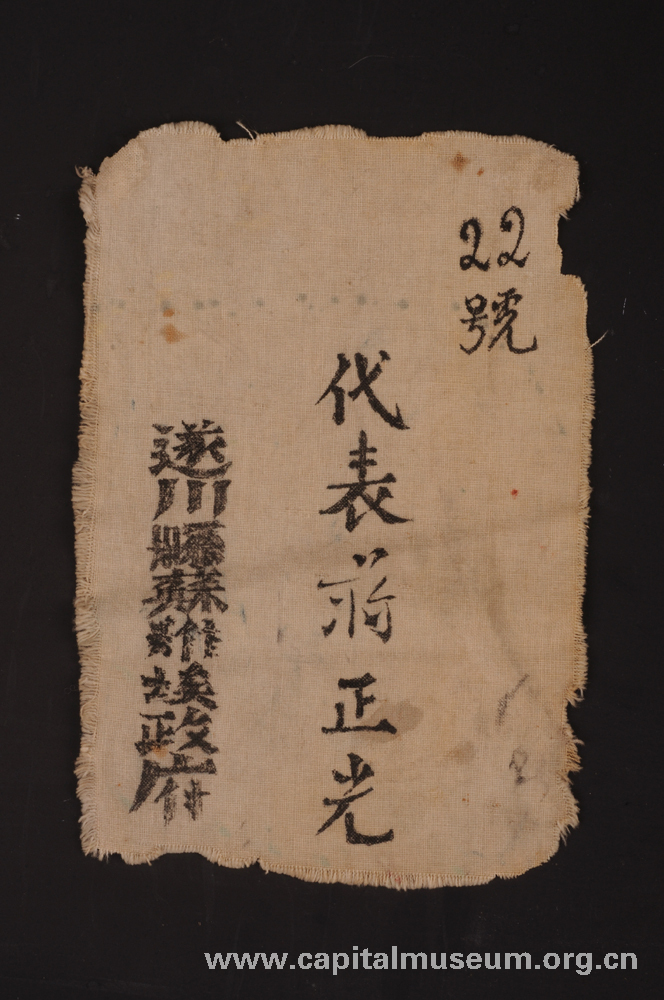 22
號
代表 正光
遂川縣蘇維埃政府
www.capitalmuseum.org.cn